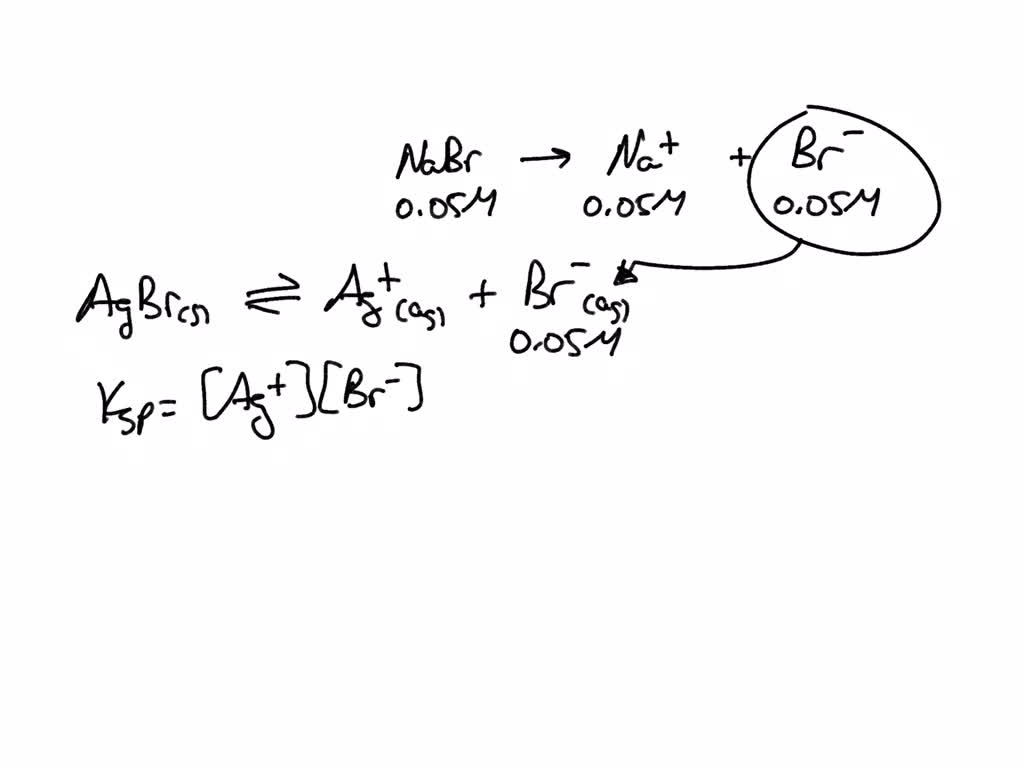 NaBr → Na⁺ + Br⁻
0.05M 0.05M 0.05M
AgBr(s) ⇌ Ag⁺(aq) + Br⁻(aq)
0.05M
Ksp = [Ag⁺][Br⁻]